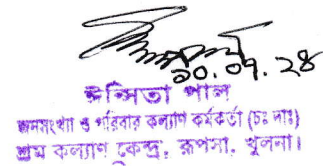 ১০.০৭.২৪
ঈপ্সিতা পাল
জনসংখ্যা ও পরিবার কল্যাণ কর্মকর্তা (চঃ দাঃ)
শ্রম কল্যাণ কেন্দ্র, রূপসা, খুলনা।